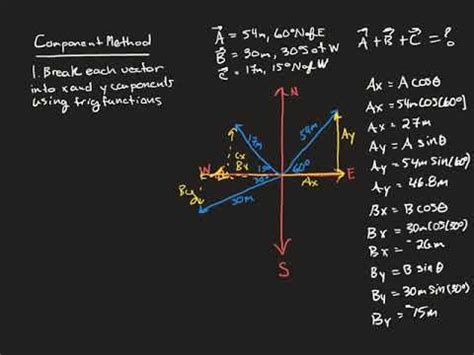 Component Method
1. Break each vector
into x and y components
using trig functions
A = 54m, 60° N of E
B = 30m, 30° S of W
C = 17m, 15° N of W
A + B + C = ?
N
17m
54m
Ay
Cx
By
W
15°
30°
60°
E
Ax
By
30m
S
Ax = A cosθ
Ax = 54m cos(60°)
Ax = 27m
Ay = A sinθ
Ay = 54m sin(60°)
Ay = 46.8m
Bx = B cosθ
Bx = 30m cos(30°)
Bx = -26m
By = B sinθ
By = 30m sin(30°)
By = -15m